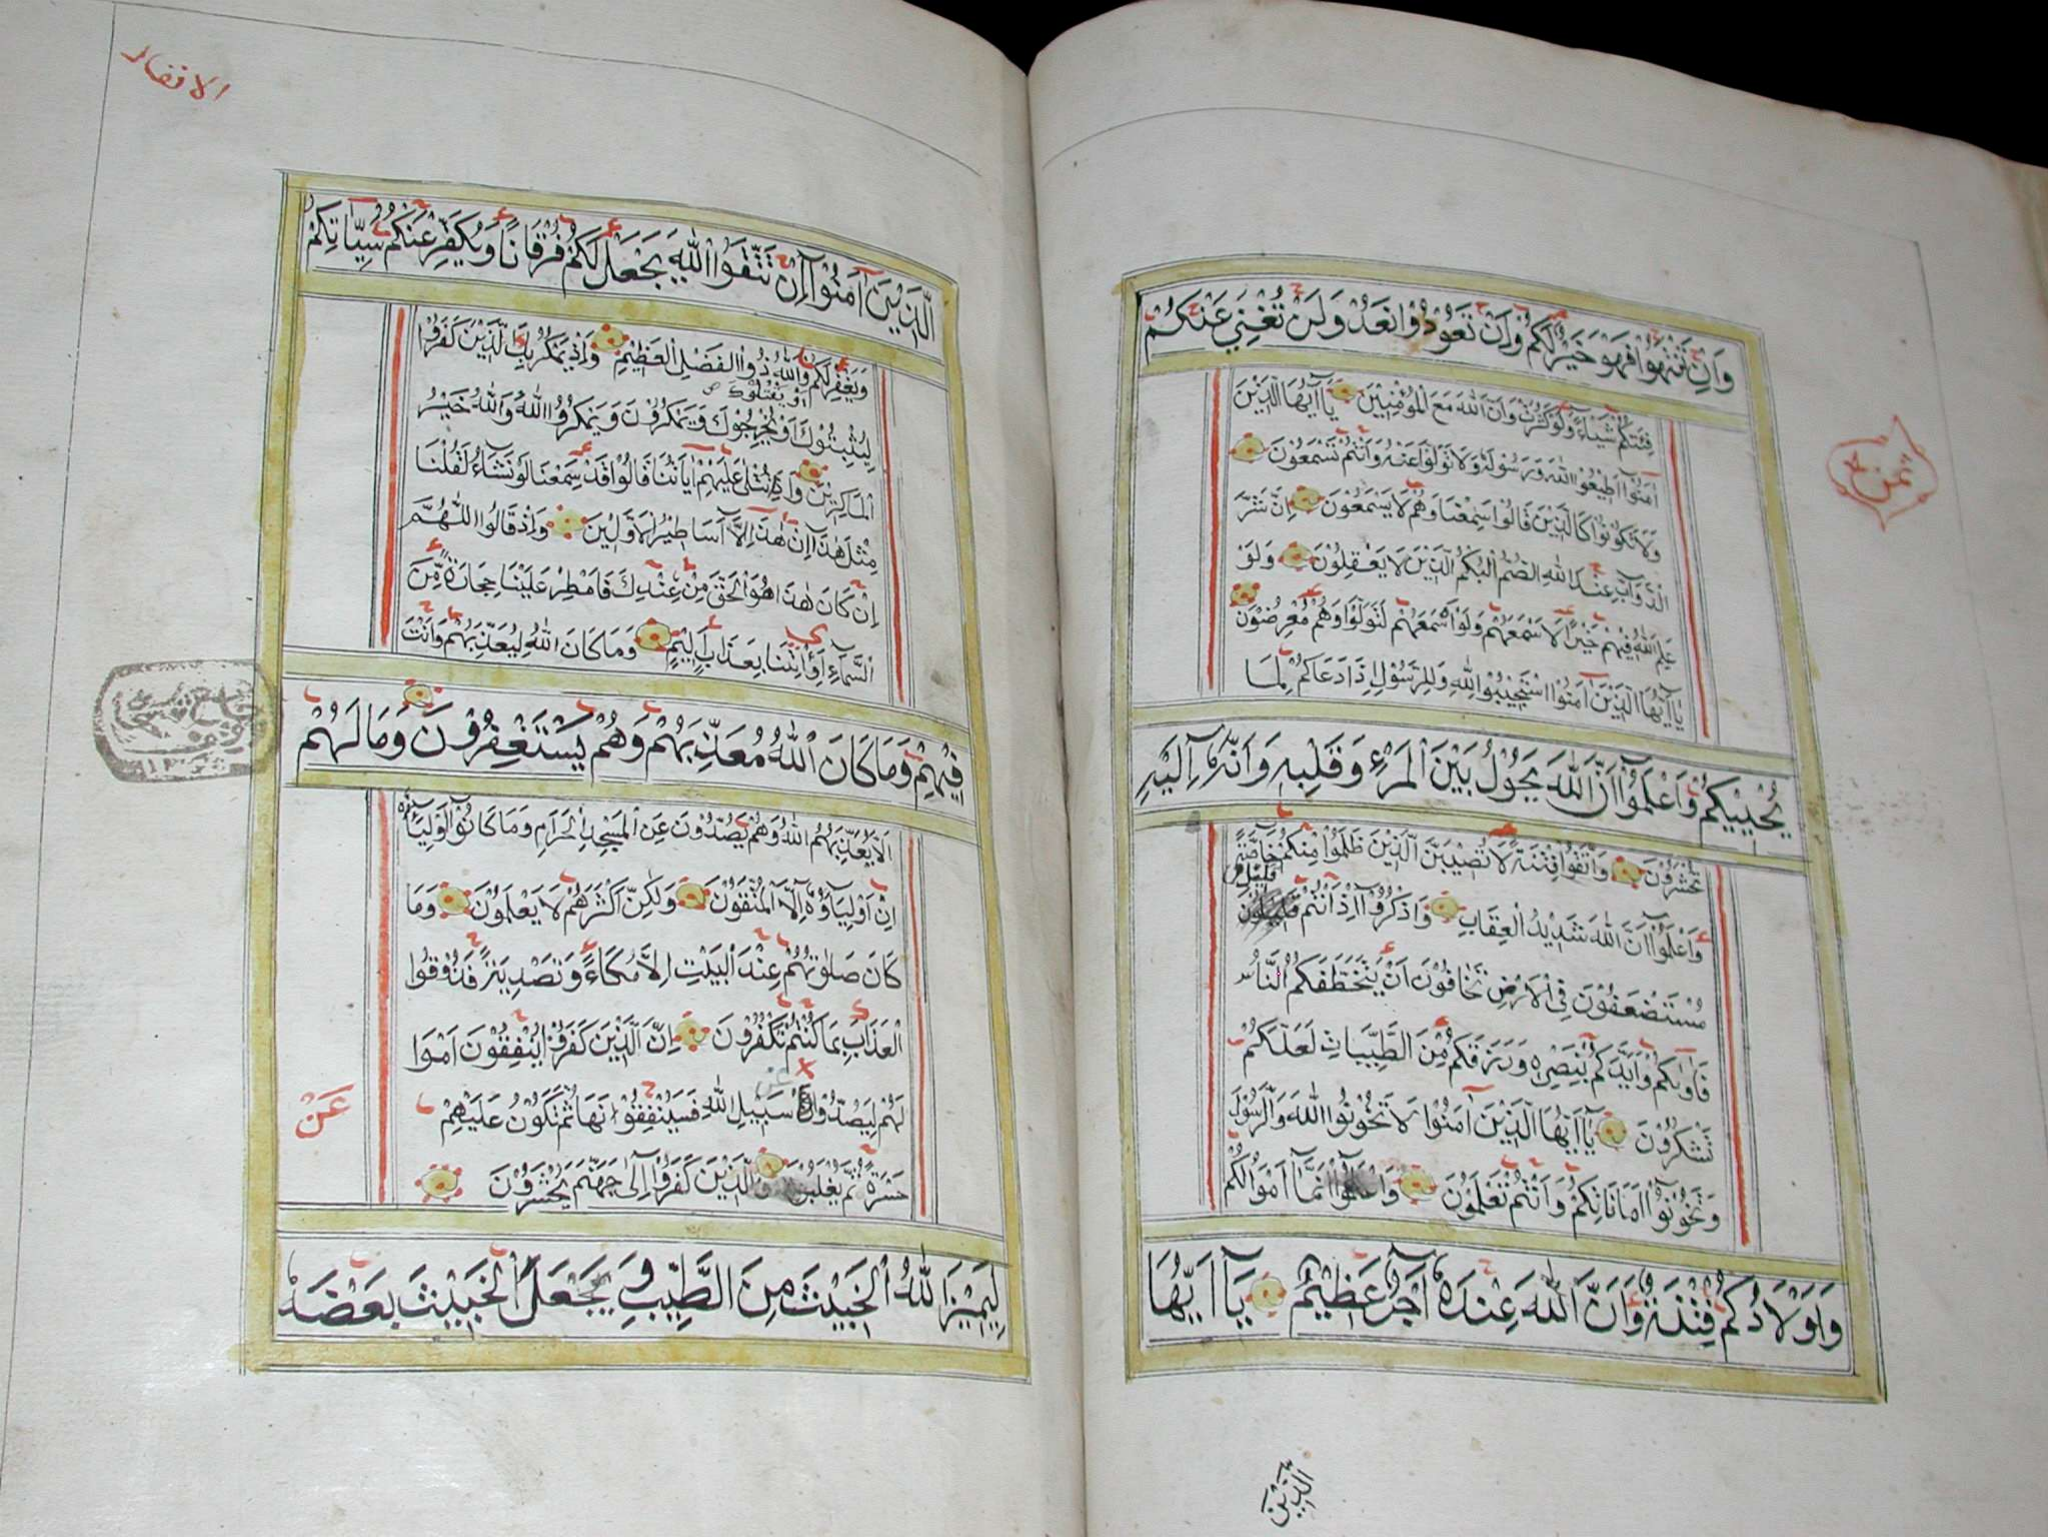 وَاِنْ تَنْتَهُوْا فَهُوَ خَيْرٌ لَكُمْ وَاِنْ تَعُوْدُوْا نَعُدْ وَلَنْ تُغْنِيَ عَنْكُمْ
فِئَتُكُمْ شَيْئًا وَلَوْ كَثُرَتْ وَاَنَّ اللّٰهَ مَعَ الْمُؤْمِنِيْنَ يَآ اَيُّهَا الَّذِيْنَ
آمَنُوْٓا اَطِيْعُوا اللّٰهَ وَرَسُوْلَهُ وَلَا تَوَلَّوْا عَنْهُ وَاَنْتُمْ تَسْمَعُوْنَ
وَلَا تَكُوْنُوْا كَالَّذِيْنَ قَالُوْا سَمِعْنَا وَهُمْ لَا يَسْمَعُوْنَ اِنَّ شَرَّ
الدَّوَآبِّ عِنْدَ اللّٰهِ الصُّمُّ الْبُكْمُ الَّذِيْنَ لَا يَعْقِلُوْنَ وَلَوْ
عَلِمَ اللّٰهُ فِيْهِمْ خَيْرًا لَاَسْمَعَهُمْ وَلَوْ اَسْمَعَهُمْ لَتَوَلَّوْا وَهُمْ مُعْرِضُوْنَ
يَآ اَيُّهَا الَّذِيْنَ آمَنُوْا اسْتَجِيْبُوْا لِلّٰهِ وَلِلرَّسُوْلِ اِذَا دَعَاكُمْ لِمَا
يُحْيِيْكُمْ وَاعْلَمُوْٓا اَنَّ اللّٰهَ يَحُوْلُ بَيْنَ الْمَرْءِ وَقَلْبِهِ وَاَنَّهُ اِلَيْهِ
تُحْشَرُوْنَ وَاتَّقُوْا فِتْنَةً لَا تُصِيْبَنَّ الَّذِيْنَ ظَلَمُوْا مِنْكُمْ خَاصَّةً
قَلِيْلٌ
وَاعْلَمُوْٓا اَنَّ اللّٰهَ شَدِيْدُ الْعِقَابِ وَاذْكُرُوْٓا اِذْ اَنْتُمْ
مُسْتَضْعَفُوْنَ فِي الْاَرْضِ تَخَافُوْنَ اَنْ يَتَخَطَّفَكُمُ النَّاسُ
فَآوٰىكُمْ وَاَيَّدَكُمْ بِنَصْرِهِ وَرَزَقَكُمْ مِنَ الطَّيِّبَاتِ لَعَلَّكُمْ
تَشْكُرُوْنَ يَآ اَيُّهَا الَّذِيْنَ آمَنُوْا لَا تَخُوْنُوا اللّٰهَ وَالرَّسُوْلَ
وَتَخُوْنُوْٓا اَمَانَاتِكُمْ وَاَنْتُمْ تَعْلَمُوْنَ وَاعْلَمُوْٓا اَنَّمَآ اَمْوَالُكُمْ
وَاَوْلَادُكُمْ فِتْنَةٌ وَاَنَّ اللّٰهَ عِنْدَهُٓ اَجْرٌ عَظِيْمٌ يَآ اَيُّهَا
الَّذِيْنَ
ثمن
الانفال
الَّذِيْنَ آمَنُوْٓا اِنْ تَتَّقُوا اللّٰهَ يَجْعَلْ لَكُمْ فُرْقَانًا وَيُكَفِّرْ عَنْكُمْ سَيِّاٰتِكُمْ
وَيَغْفِرْ لَكُمْ وَاللّٰهُ ذُوا الْفَضْلِ الْعَظِيْمِ وَاِذْ يَمْكُرُ بِكَ الَّذِيْنَ كَفَرُوْا
اَوْ يَقْتُلُوْكَ
لِيُثْبِتُوْكَ اَوْ يُخْرِجُوْكَ وَيَمْكُرُوْنَ وَيَمْكُرُ اللّٰهُ وَاللّٰهُ خَيْرُ
الْمَاكِرِيْنَ وَاِذَا تُتْلٰى عَلَيْهِمْ آيَاتُنَا قَالُوْا قَدْ سَمِعْنَا لَوْ نَشَآءُ لَقُلْنَا
مِثْلَ هٰذَآ اِنْ هٰذَآ اِلَّآ اَسَاطِيْرُ الْاَوَّلِيْنَ وَاِذْ قَالُوا اللّٰهُمَّ
اِنْ كَانَ هٰذَا هُوَ الْحَقَّ مِنْ عِنْدِكَ فَاَمْطِرْ عَلَيْنَا حِجَارَةً مِّنَ
السَّمَآءِ اَوِ ائْتِنَا بِعَذَابٍ اَلِيْمٍ وَمَا كَانَ اللّٰهُ لِيُعَذِّبَهُمْ وَاَنْتَ
فِيْهِمْ وَمَا كَانَ اللّٰهُ مُعَذِّبَهُمْ وَهُمْ يَسْتَغْفِرُوْنَ وَمَا لَهُمْ
اَلَّا يُعَذِّبَهُمُ اللّٰهُ وَهُمْ يَصُدُّوْنَ عَنِ الْمَسْجِدِ الْحَرَامِ وَمَا كَانُوْٓا اَوْلِيَآءَهُ
اِنْ اَوْلِيَآؤُهُٓ اِلَّا الْمُتَّقُوْنَ وَلٰكِنَّ اَكْثَرَهُمْ لَا يَعْلَمُوْنَ وَمَا
كَانَ صَلٰوتُهُمْ عِنْدَ الْبَيْتِ اِلَّا مُكَآءً وَتَصْدِيَةً فَذُوْقُوا
الْعَذَابَ بِمَا كُنْتُمْ تَكْفُرُوْنَ اِنَّ الَّذِيْنَ كَفَرُوْا يُنْفِقُوْنَ اَمْوَا
عَنْ
لَهُمْ لِيَصُدُّوْا سَبِيْلِ اللّٰهِ فَسَيُنْفِقُوْنَهَا ثُمَّ تَكُوْنُ عَلَيْهِمْ
عَنْ
حَسْرَةً ثُمَّ يُغْلَبُوْنَ وَالَّذِيْنَ كَفَرُوْٓا اِلٰى جَهَنَّمَ يُحْشَرُوْنَ
لِيَمِيْزَ اللّٰهُ الْخَبِيْثَ مِنَ الطَّيِّبِ وَيَجْعَلَ الْخَبِيْثَ بَعْضَهُ